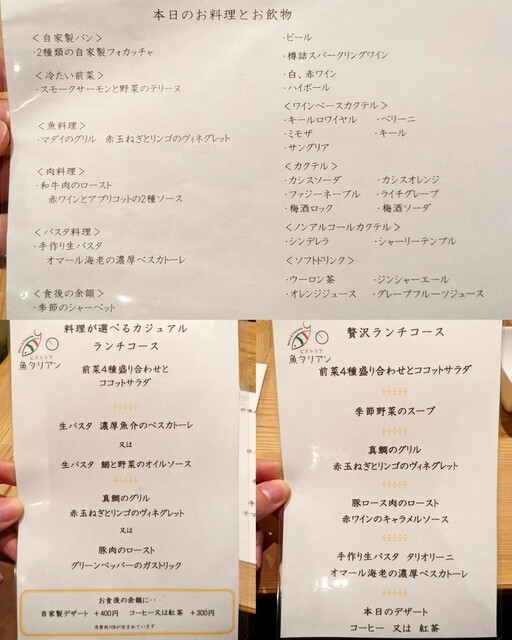 本日のお料理とお飲物
＜自家製パン＞
・2種類の自家製フォカッチャ
＜冷たい前菜＞
・スモークサーモンと野菜のテリーヌ
＜魚料理＞
・マダイのグリル　赤玉ねぎとリンゴのヴィネグレット
＜肉料理＞
・和牛肉のロースト
赤ワインとアプリコットの2種ソース
＜パスタ料理＞
・手作り生パスタ
オマール海老の濃厚ペスカトーレ
＜食後の余韻＞
・季節のシャーベット
・ビール
・樽詰スパークリングワイン
・白、赤ワイン
・ハイボール
＜ワインベースカクテル＞
・キールロワイヤル　・ベリーニ
・ミモザ　・キール
・サングリア
＜カクテル＞
・カシスソーダ　・カシスオレンジ
・ファジーネーブル　・ライチグレープ
・梅酒ロック　・梅酒ソーダ
＜ノンアルコールカクテル＞
・シンデレラ　・シャーリーテンプル
＜ソフトドリンク＞
・ウーロン茶　・ジンジャーエール
・オレンジジュース　・グレープフルーツジュース
ビストリア
魚タリアン
料理が選べるカジュアル
ランチコース
前菜4種盛り合わせと
ココットサラダ
生パスタ 濃厚魚介のペスカトーレ
又は
生パスタ 鰯と野菜のオイルソース
真鯛のグリル
赤玉ねぎとリンゴのヴィネグレット
又は
豚肉のロースト
グリーンペッパーのガストリック
お食後の余韻に‥
自家製デザート ＋400円　コーヒー又は紅茶 ＋300円
ビストリア
魚タリアン
贅沢ランチコース
前菜4種盛り合わせとココットサラダ
季節野菜のスープ
真鯛のグリル
赤玉ねぎとリンゴのヴィネグレット
豚ロース肉のロースト
赤ワインのキャラメルソース
手作り生パスタ タリオリーニ
オマール海老の濃厚ペスカトーレ
本日のデザート
コーヒー 又は 紅茶